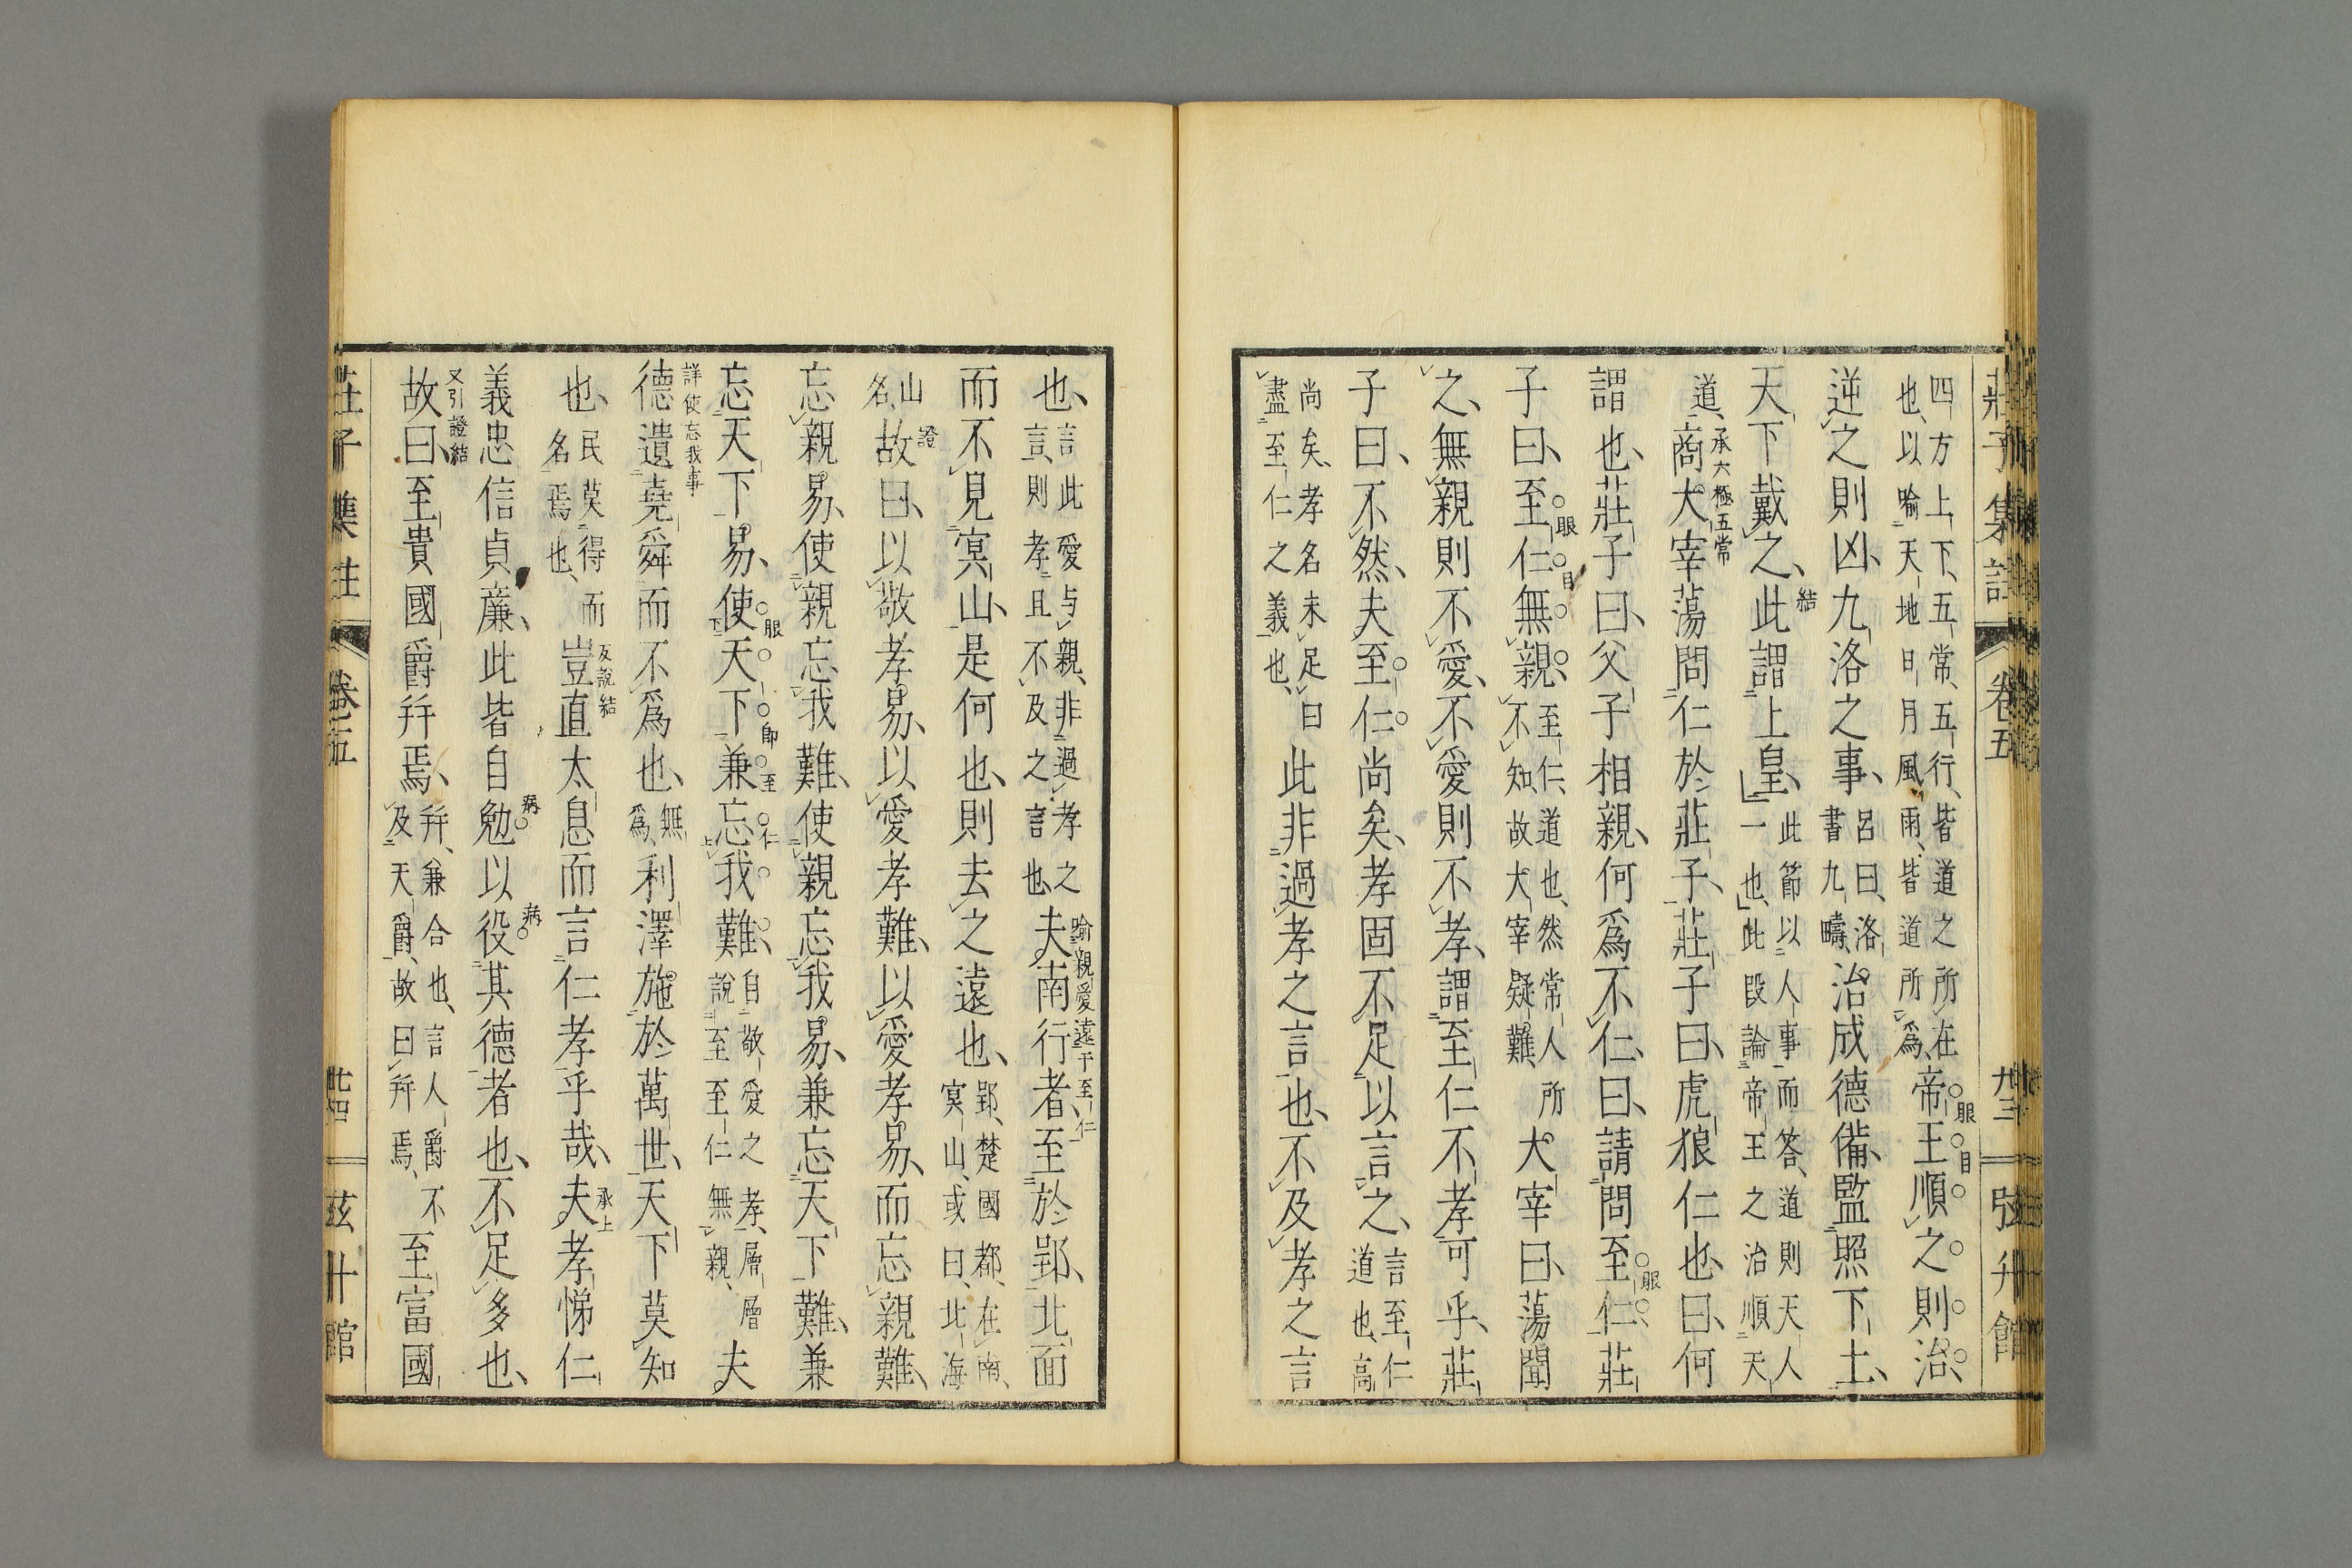 莊子集註 卷五 九十三 弦升館
四方上下、五常、五行、皆道之所在
也、以喻天地日月風雨、皆道所爲、帝王順之則治、
逆之則凶、九洛之事、呂曰、洛書九疇、治成德備、監照下土、
天下戴之、此謂上皇、此節以人事而答、道則天人一也、此段論帝王之治順天
道、商大宰蕩問仁於莊子、莊子曰、虎狼仁也、曰、何
謂也、莊子曰、父子相親、何爲不仁、曰、請問至仁、莊
子曰、至仁無親、至仁、道也、然常人所不知、故大宰疑難、大宰曰、蕩聞
之、無親則不愛、不愛則不孝、謂至仁不孝可乎、莊
子曰、不然、夫至仁尚矣、孝固不足以言之、言至仁道也、高
尚矣、孝名未足曰盡至仁之義也、此非過孝之言也、不及孝之言
結
承六極五常
眼目
眼
眼目
也、言此愛与親、非過孝之言、則孝且不及之言也、夫南行者、至於郢、北面
而不見冥山、是何也、則去之遠也、郢、楚國都、在南、冥山、或曰、北海
山名、故曰、以敬孝易、以愛孝難、以愛孝易、而忘親難、
忘親易、使親忘我難、使親忘我易、兼忘天下難、兼
忘天下易、使天下兼忘我難、自敬愛之孝、層層說至至仁無親、夫
德遺堯舜而不爲也、無爲、利澤施於萬世、天下莫知
也、民莫得而名焉也、豈直太息而言仁孝乎哉、夫孝悌仁
義忠信貞廉、此皆自勉以役其德者也、不足多也、
故曰、至貴國爵幷焉、幷、兼合也、言人爵不及天爵、故曰幷焉、至富國
喻親愛遠于至仁
證
眼
即至仁
詳使忘我事
反說結
承上
病
病
又引證結
莊子集註 卷五 弦升館